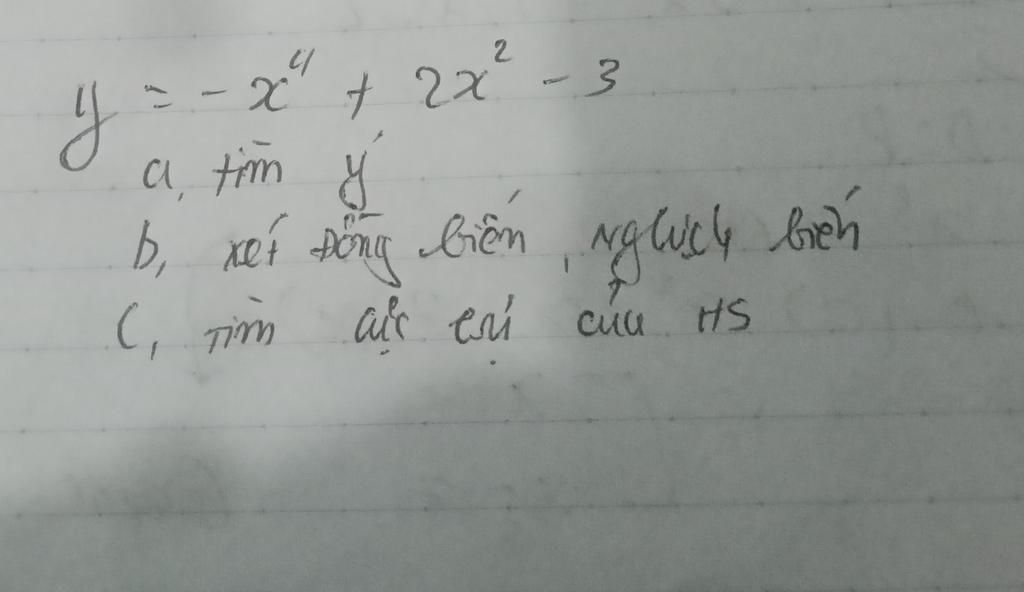 y = -x⁴ + 2x² - 3
a, tìm y'
b, xét Đồng biến, Nghịch biến
c, Tìm cực trị của HS